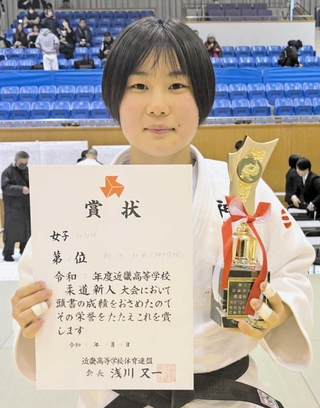 賞状
女子
第 位
令和 年度近畿高等学校
柔道新人大会において
頭書の成績をおさめたので
その栄誉をたたえこれを賞
します
令和 年 月 日
近畿高等学校体育連盟
会長 浅川又一